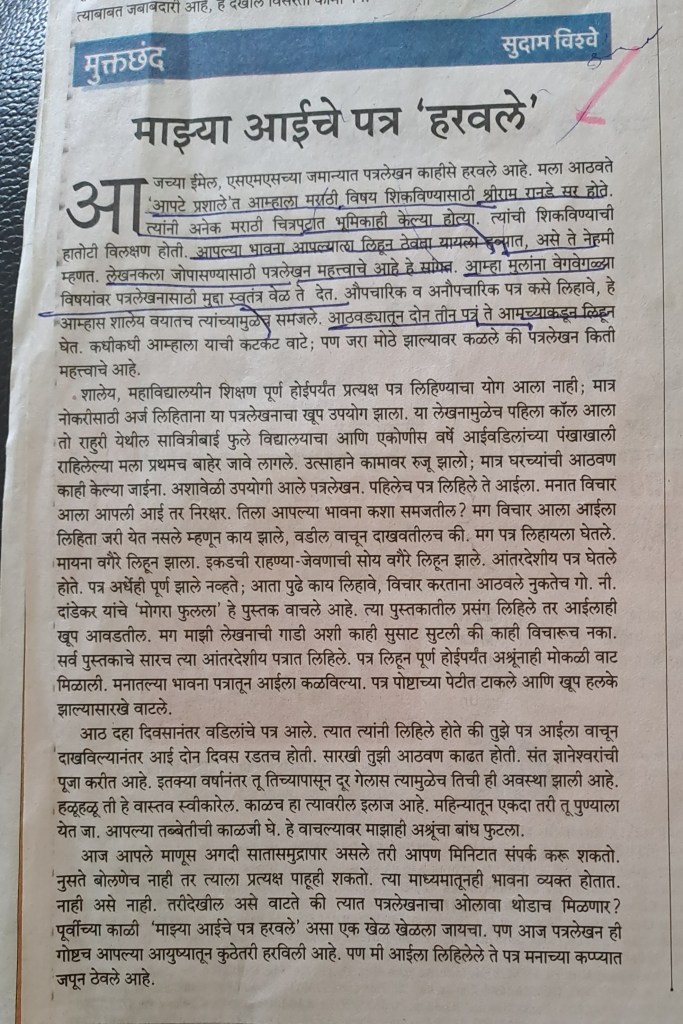 त्याबाबत जबाबदारी आहे, हे देखील विसरता
मुक्तछंद
सुदाम विश्वे
माझ्या आईचे पत्र ‘हरवले’
आजच्या ईमेल, एसएमएसच्या जमान्यात पत्रलेखन काहीसे हरवले आहे. मला आठवते
‘आपटे प्रशाले’त आम्हाला मराठी विषय शिकविण्यासाठी श्रीराम रानडे सर होते.
त्यांनी अनेक मराठी चित्रपटांत भूमिकाही केल्या होत्या. त्यांची शिकविण्याची
हातोटी विलक्षण होती. आपल्या भावना आपल्याला लिहून ठेवता यायला हव्यात, असे ते नेहमी
म्हणत. लेखनकला जोपासण्यासाठी पत्रलेखन महत्त्वाचे आहे हे सांगत. आम्हा मुलांना वेगवेगळ्या
विषयांवर पत्रलेखनासाठी मुद्दा स्वतंत्र वेळ ते देत. औपचारिक व अनौपचारिक पत्र कसे लिहावे, हे
आम्हास शालेय वयातच त्यांच्यामुळे समजले. आठवड्यातून दोन तीन पत्रं ते आमच्याकडून लिहून
घेत. कधीकधी आम्हाला याची कटकट वाटे; पण जरा मोठे झाल्यावर कळले की पत्रलेखन किती
महत्त्वाचे आहे.
शालेय, महाविद्यालयीन शिक्षण पूर्ण होईपर्यंत प्रत्यक्ष पत्र लिहिण्याचा योग आला नाही; मात्र
नोकरीसाठी अर्ज लिहिताना या पत्रलेखनाचा खूप उपयोग झाला. या लेखनामुळेच पहिला कॉल आला
तो राहुरी येथील सावित्रीबाई फुले विद्यालयाचा आणि एकोणीस वर्षे आईवडिलांच्या पंखाखाली
राहिलेल्या मला प्रथमच बाहेर जावे लागले. उत्साहाने कामावर रुजू झालो; मात्र घरच्यांची आठवण
काही केल्या जाईना. अशावेळी उपयोगी आले पत्रलेखन. पहिलेच पत्र लिहिले ते आईला. मनात विचार
आला आपली आई तर निरक्षर. तिला आपल्या भावना कशा समजतील? मग विचार आला आईला
लिहिता जरी येत नसले म्हणून काय झाले, वडील वाचून दाखवतीलच की. मग पत्र लिहायला घेतले.
मायना वगैरे लिहून झाला. इकडची राहण्या-जेवणाची सोय वगैरे लिहून झाले. आंतरदेशीय पत्र घेतले
होते. पत्र अर्धेही पूर्ण झाले नव्हते; आता पुढे काय लिहावे, विचार करताना आठवले नुकतेच गो. नी.
दांडेकर यांचे ‘मोगरा फुलला’ हे पुस्तक वाचले आहे. त्या पुस्तकातील प्रसंग लिहिले तर आईलाही
खूप आवडतील. मग माझी लेखनाची गाडी अशी काही सुसाट सुटली की काही विचारूच नका.
सर्व पुस्तकाचे सारच त्या आंतरदेशीय पत्रात लिहिले. पत्र लिहून पूर्ण होईपर्यंत अश्रूंनाही मोकळी वाट
मिळाली. मनातल्या भावना पत्रातून आईला कळविल्या. पत्र पोष्टाच्या पेटीत टाकले आणि खूप हलके
झाल्यासारखे वाटले.
आठ दहा दिवसानंतर वडिलांचे पत्र आले. त्यात त्यांनी लिहिले होते की तुझे पत्र आईला वाचून
दाखविल्यानंतर आई दोन दिवस रडतच होती. सारखी तुझी आठवण काढत होती. संत ज्ञानेश्वरांची
पूजा करीत आहे. इतक्या वर्षानंतर तू तिच्यापासून दूर गेलास त्यामुळेच तिची ही अवस्था झाली आहे.
हळूहळू ती हे वास्तव स्वीकारेल. काळच हा त्यावरील इलाज आहे. महिन्यातून एकदा तरी तू पुण्याला
येत जा. आपल्या तब्बेतीची काळजी घे. हे वाचल्यावर माझाही अश्रूंचा बांध फुटला.
आज आपले माणूस अगदी सातासमुद्रापार असले तरी आपण मिनिटात संपर्क करू शकतो.
नुसते बोलणेच नाही तर त्याला प्रत्यक्ष पाहूही शकतो. त्या माध्यमातूनही भावना व्यक्त होतात.
नाही असे नाही. तरीदेखील असे वाटते की त्यात पत्रलेखनाचा ओलावा थोडाच मिळणार?
पूर्वीच्या काळी ‘माझ्या आईचे पत्र हरवले’ असा एक खेळ खेळला जायचा. पण आज पत्रलेखन ही
गोष्टच आपल्या आयुष्यातून कुठेतरी हरविली आहे. पण मी आईला लिहिलेले ते पत्र मनाच्या कप्प्यात
जपून ठेवले आहे.